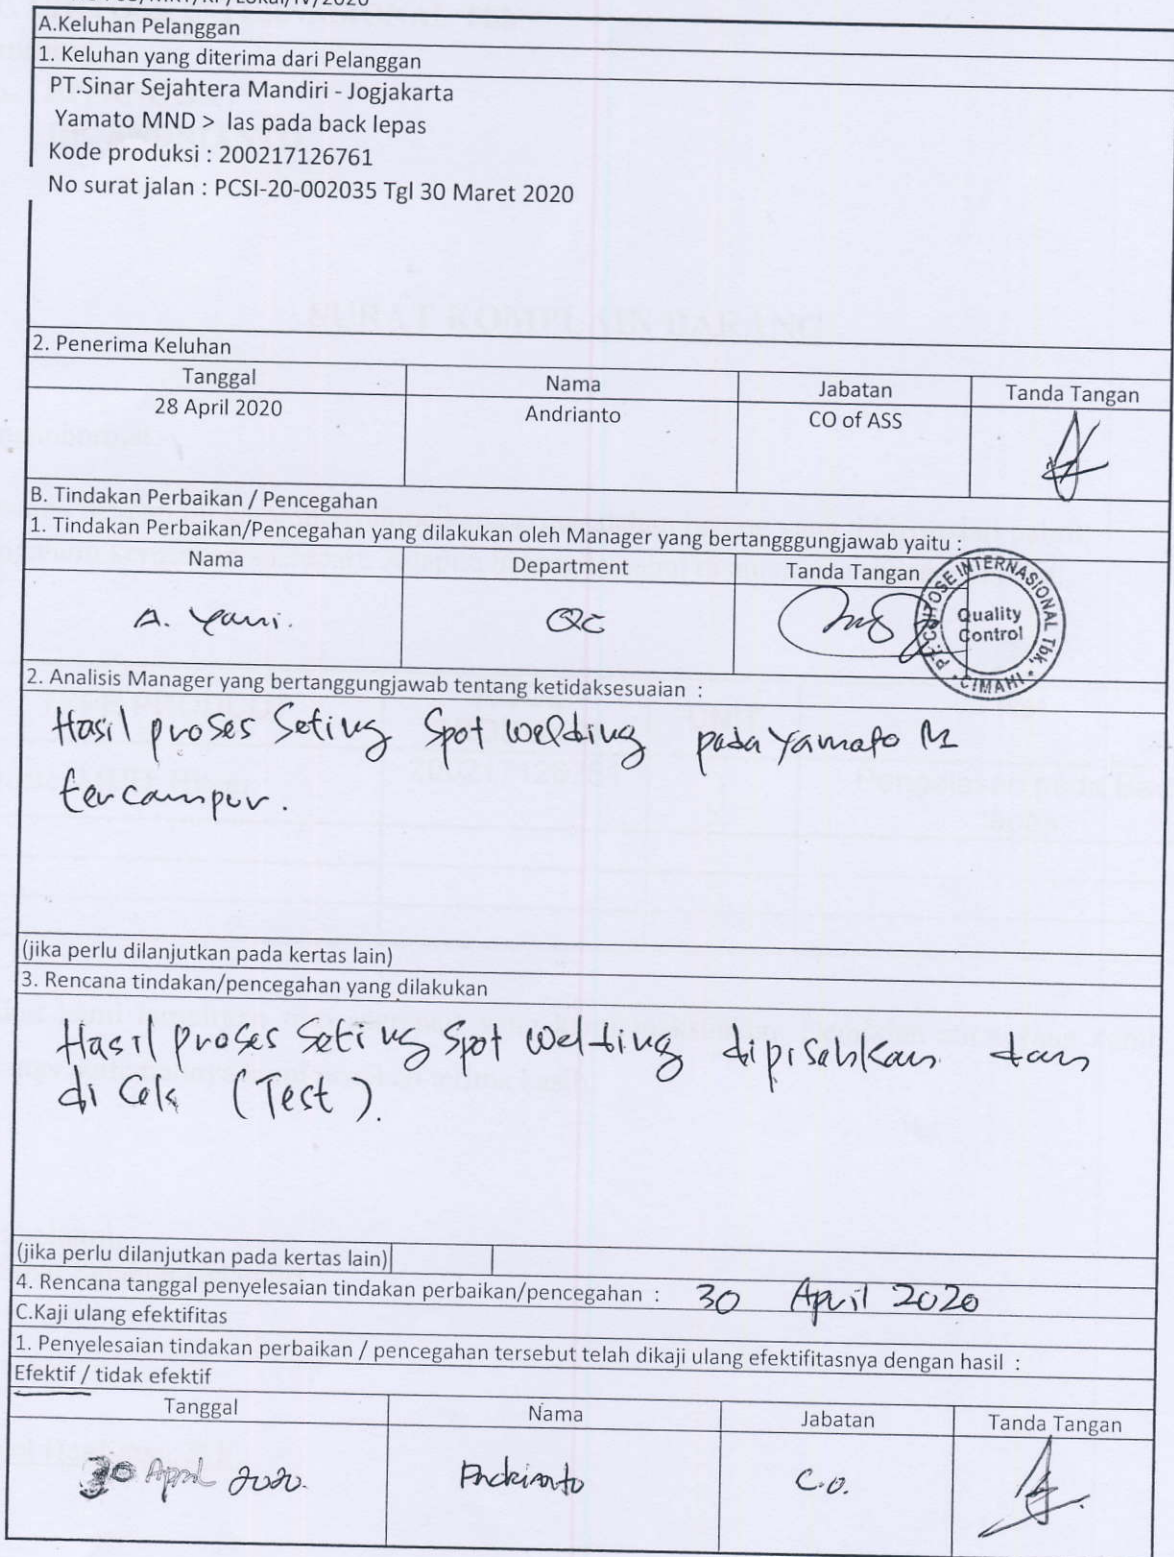 A.Keluhan Pelanggan
1. Keluhan yang diterima dari Pelanggan
PT.Sinar Sejahtera Mandiri - Jogjakarta
Yamato MND > las pada back lepas
Kode produksi : 200217126761
No surat jalan : PCSI-20-002035 Tgl 30 Maret 2020
SURAT KOMPLAIN BARANG
2. Penerima Keluhan
Tanggal Nama Jabatan Tanda Tangan
28 April 2020 Andrianto CO of ASS
B. Tindakan Perbaikan / Pencegahan
1. Tindakan Perbaikan/Pencegahan yang dilakukan oleh Manager yang bertangggungjawab yaitu :
Nama Department Tanda Tangan
A. Yani. QC
PT. CHITOSE INTERNASIONAL Tbk,
Quality
Control
CIMAHI
2. Analisis Manager yang bertanggungjawab tentang ketidaksesuaian :
Hasil proses Seting Spot welding pada Yamato M
tercampur.
(jika perlu dilanjutkan pada kertas lain)
3. Rencana tindakan/pencegahan yang dilakukan
Hasil proses Seting Spot welding dipisahkan dan
di Cek (Test).
(jika perlu dilanjutkan pada kertas lain)
4. Rencana tanggal penyelesaian tindakan perbaikan/pencegahan : 30 April 2020
C.Kaji ulang efektifitas
1. Penyelesaian tindakan perbaikan / pencegahan tersebut telah dikaji ulang efektifitasnya dengan hasil :
Efektif / tidak efektif
Tanggal Nama Jabatan Tanda Tangan
30 April 2020. Andrianto C.O.